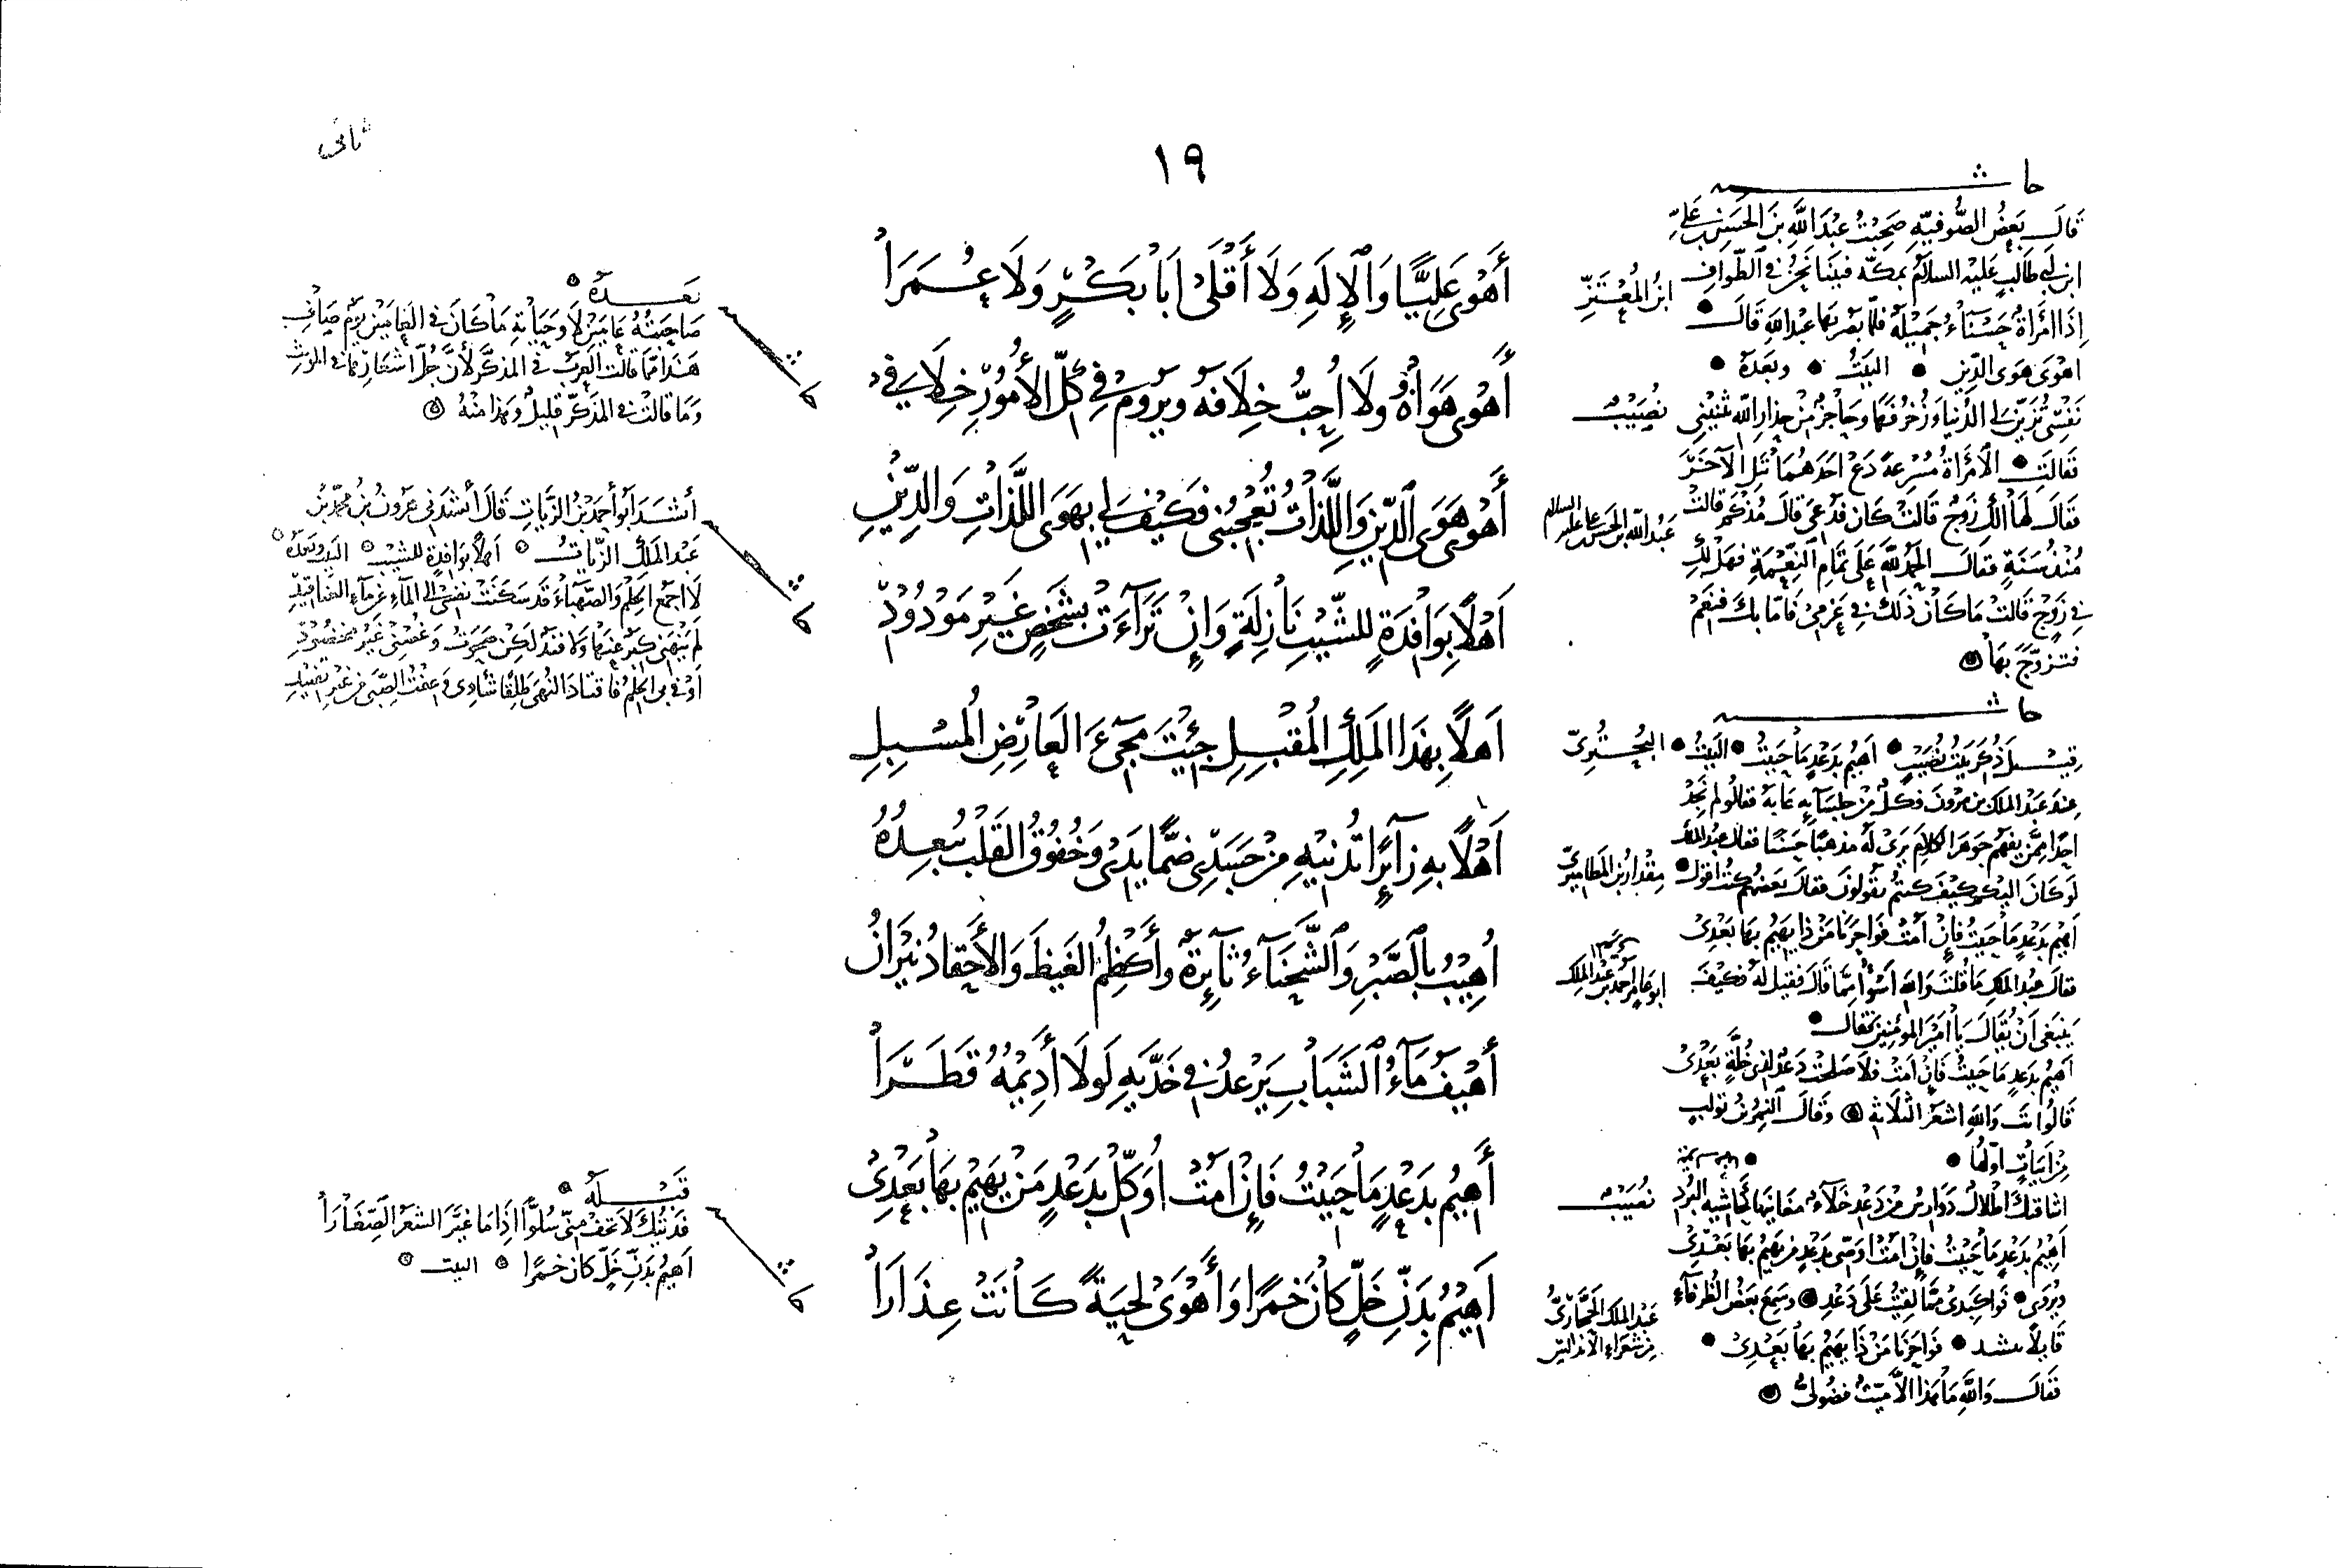 ثانى
١٩
أَهْوى عَلِيًّا وَالإِلهِ وَلَا أَقْلَى أَبَا بَكْرٍ وَلَا عُمَرَا
أَهْوى هَوَاهُ وَلَا أُحِبُّ خِلَافَهُ وَيَرُومُ فِي كُلِّ الأُمُورِ خِلَافِي
أَهْوى هَوَى الدِّينِ وَاللَّذَّاتُ تُعْجِبُنِى فَكَيْفَ لِي بِهَوَى اللَّذَّاتِ وَالدِّينِ
أَهْلًا بِوَافِدَةٍ لِلشَّيْبِ نَازِلَةٍ وَإِنْ تَرَاءَتْ بِشَخْصٍ غَيْرِ مَوْدُودِ
أَهلًا بِهَذَا المَلِكِ المُقْبِلِ جِئْتَ مَجِىءَ العَارِضِ المُسْبِلِ
أَهْلًا بِهِ زَائِرًا تُدْنِيهِ مِنْ جَسَدِى ضَمًّا يَدِى وَخُفُوقُ القَلْبِ يُبْعِدُهُ
أُهِيبُ بِالصَّبْرِ وَالشَّحْنَاءُ ثَائِرَةٌ وَأَكْظِمُ الغَيْظَ وَالأَحْقَادُ نِيرَانُ
أَهْيَفُ مَاءُ الشَّبَابِ يَرْعدُ فِي خَدَّيهِ لَولَا أَدِيمُهُ قَطَرَا
أَهِيمُ بِدَعْدٍ مَا حَيِيتُ فَإِنْ أَمُتْ أُوَكِّلْ بِدَعْدٍ مَنْ يَهِيمُ بِهَا بَعْدِى
أَهِيمُ بِدَنِّ خَلٍّ كَانَ خَمْرًا وَأَهْوَى لِحْيَةً كَانَتْ عِذَارَا
ابنُ المُعْتَزِّ
نُصَيْبٌ
عَبْدُ اللهِ بن الحسن عليه السلام
البُحْتُرِيُّ
مِقْدَارُ بن المَطَامِيرِيّ
أبو عامر أحمد بن عبد الملك
نُصَيْبٌ
عَبْدُ الملك الحِجَارِيُّ
مِنْ شُعَرَاءِ الأندلس
حاشيه
قَالَ بَعْضُ الصُّوفيّهِ صَحِبْتُ عَبْدَ اللهِ بنَ الحَسَنِ بن عَليّ
ابن أبي طَالبٍ عَلَيْهِ السلامُ بمكّه فبَينَا نَحْنُ في الطّوافِ
إِذَا امْرَأَةٌ حَسْنَاءُ جَمِيلَةٌ فلمّا بَصُرَ بهَا عَبْدُ اللهِ قَالَ
اهْوَى هَوَى الدّينِ البَيْتُ وبَعْدَهُ
نَفْسِي تُزَيّنُ لِى الدُّنيا وَزُخْرُفَهَا وَحَاجِزٌ مِنْ حِذَارِ اللهِ يَثْنِينِي
فَقَالَتِ الامْرَأَةُ مُسْرِعَةً دَعْ احَدَهُمَا تَنَلِ الآخَرَ
فَقَالَ لَهَا أَلَكِ زَوْجٌ قَالَتْ كَانَ فَدُعِىَ قَالَ مُذْ كَمْ قالَتْ
مُنْذُ سَنَةٍ فقَالَ الحَمْدُ للهِ عَلَى تَمَامِ النِّعْمَةِ فهَلْ لَكِ
في زَوْجٍ قالَتْ مَا كَانَ ذَلِكَ في عَزْمِي فَامّا بِكَ فنَعَمْ
فتزوّجَ بهَا
حاشيه
قِيلَ ذُكِرَ بَيْتُ نُصَيْبٍ أَهِيمُ بِدَعْدٍ مَا حَيِيتُ البَيْتُ
عِندَ عَبْدِ الملك بن مروَنَ فكلٌّ مِنْ جلسَائِهِ عَابَهُ فقالُوا لم نجِدْ
احَدًا مِمَّنْ يَفهَمُ جَوهَرَ الكَلَامِ يَرَى لَهُ مَذهَبًا حَسَنًا فقال عبدُ الملك
لَو كَانَ اليكم كيفَ كنتم تقولونَ فقالَ بَعضُهم كنتُ اقولُ
أَهيمُ بدَعْدٍ مَا حَيِيتُ فَإِنْ أَمُتْ فَوَاحَزَنَا مَنْ ذَا يَهِيمُ بهَا بَعْدِى
فقالَ عبدُ المَلِكِ مَا قُلْتَ وَاللهِ أَسْوَأُ ممّا قَالَ فقيلَ لَهُ فكَيْفَ
يَنبَغى أَنْ يُقَالَ يَا أَمِيرَ المُؤمِنينَ فقال
أَهيمُ بدَعْدٍ مَا حَيِيتُ فَإِنْ أَمُتْ فلَا صَلَحَتْ دَعْدٌ لِذِى خُلَّةٍ بَعْدِى
قَالُوا أَنتَ وَاللهِ اشعَرُ الثّلَاثَةِ وقَالَ النمِرُ بنُ تَولَبٍ
مِنْ أَبيَاتٍ أوّلُهَا
اشَاقتكَ اطْلَالٌ دَوَارِسُ مِنْ دَعْدِ خَلَاءٌ مَغانِيهَا كَحَاشِيَةِ البُرْدِ
أَهِيمُ بدَعْدٍ مَا حَيِيتُ فَإِنْ أَمُتْ أُوَصّى بدَعْدٍ مَنْ يَهِيمُ بِهَا بَعْدِى
وَيُروَى فَوَاكَبِدِى ممّا لَقِيتُ عَلَى دَعْدِ وسَمِعَ بَعْضُ الظُّرفَاءِ
قَائِلًا ينشد فَوَاحَزَنَا مَنْ ذَا يَهِيمُ بِهَا بَعْدِى
فَقَالَ وَاللهِ مَا هَذَا الَّا مَيِّتٌ فضُولىٌّ
بَعْدَهُ
هَذَا ممّا قالَت العَرَبُ في المذكَّر لأنّ جُلّ اشعَارِهَا في المؤنّثِ
وَمَا قالَتْ في المذَكَّرِ قليلٌ وَهَذا منْهُ
أنْشَدَ أبُو أحمَد بن الزَّيّاتِ قَالَ أنشَدَنى هَرونُ بنُ محمّدِ بنِ
عَبْدِ المَلكِ الزّياتِ أهلًا بوَافِدَةٍ للشيب البيت وبَعْدَهُ
لَا أَجْمَعُ الحِلمَ والصّهبَاءَ قَد سَكَنَتْ نفسِى الى المَاءِ عَن مَاءِ العَنَاقيدِ
لَمْ يَنْهَنِى كِبَرٌ عَنهَا وَلَا فَنَدٌ لَكِنْ صَحَوتُ وَغُصْنِى غَيْرُ مَخضُودِ
أَوْفَى بىَ الحِلمُ فَاقتَادَ النُّهَى طَلِقًا شَأْوِى وَعِفتُ الصِّبَى مِن غيرِ تَفنِيدِ
قَبْلَهُ
فَدَيْتُكَ لَا تَخَفْ مِنِّى سُلُوًّا إِذَا مَا غَيَّرَ الشعَرُ الصِّغَارَا
أَهِيمُ بدَنِّ خَلٍّ كَانَ خَمْرًا البيت